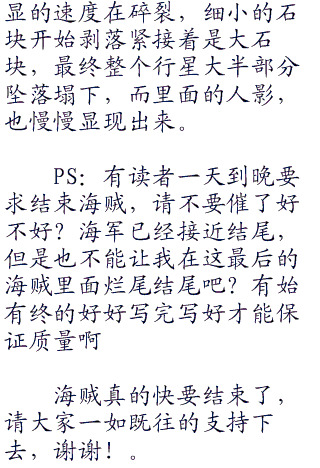 显的速度在碎裂，细小的石
块开始剥落紧接着是大石
块，最终整个行星大半部分
坠落塌下，而里面的人影，
也慢慢显现出来。
PS：有读者一天到晚要
求结束海贼，请不要催了好
不好？海军已经接近结尾，
但是也不能让我在这最后的
海贼里面烂尾结尾吧？有始
有终的好好写完写好才能保
证质量啊
海贼真的快要结束了，
请大家一如既往的支持下
去，谢谢！。